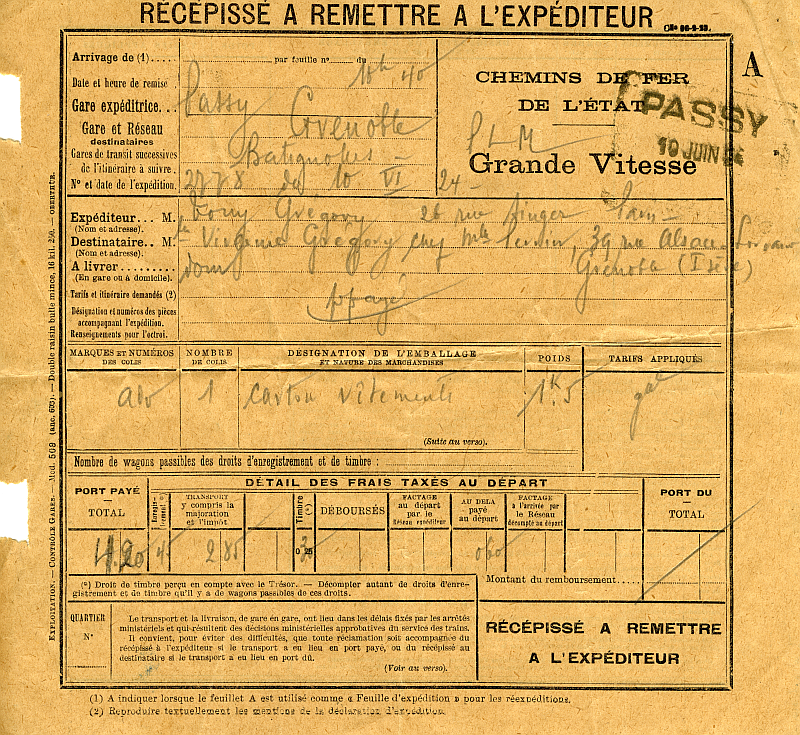 RÉCÉPISSÉ A REMETTRE A L'EXPÉDITEUR
A
Arrivage de (1).... par feuille n° du
Date et heure de remise 10h 40
Gare expéditrice... Passy
Gare et Réseau destinataires Grenoble PLM
Gares de transit successives de l'itinéraire à suivre. Batignolles
N° et date de l'expédition. 3778 du 10 VI 24
CHEMINS DE FER
DE L'ÉTAT
Grande Vitesse
PASSY
10 JUIN 24
Expéditeur... M. Grégory 26 rue Singer Paris
(Nom et adresse).
Destinataire.. M. Virginie Grégory chez Mlle 39 rue Alsace Lorraine
(Nom et adresse).
A livrer......... dom Grenoble (Isère)
(En gare ou à domicile).
Tarifs et itinéraire demandés (2) ppayé
Désignation et numéros des pièces
accompagnant l'expédition.
Renseignements pour l'octroi.
MARQUES ET NUMÉROS DES COLIS
NOMBRE DE COLIS
DESIGNATION DE L'EMBALLAGE ET NATURE DES MARCHANDISES
POIDS
TARIFS APPLIQUÉS
1 carton vêtements 1k5 gal
(Suite au verso).
Nombre de wagons passibles des droits d'enregistrement et de timbre :
DÉTAIL DES FRAIS TAXÉS AU DÉPART
PORT PAYÉ
TOTAL
Enregistrement
TRANSPORT y compris la majoration et l'impôt
Timbre (*)
DÉBOURSÉS
FACTAGE au départ par le Réseau expéditeur
AU DELA payé au départ
FACTAGE à l'arrivée par le Réseau décompté au départ
PORT DU
TOTAL
4.20 45 2 85 0 25 0 60
Montant du remboursement....
(*) Droit de timbre perçu en compte avec le Trésor. — Décompter autant de droits d'enregistrement et de timbre qu'il y a de wagons passibles de ces droits.
QUARTIER
N°
Le transport et la livraison, de gare en gare, ont lieu dans les délais fixés par les arrêtés
ministériels et qui résultent des décisions ministérielles approbatives du service des trains.
Il convient, pour éviter des difficultés, que toute réclamation soit accompagnée du
récépissé à l'expéditeur si le transport a eu lieu en port payé, ou du récépissé au
destinataire si le transport a eu lieu en port dû.
(Voir au verso).
RÉCÉPISSÉ A REMETTRE
A L'EXPÉDITEUR
(1) A indiquer lorsque le feuillet A est utilisé comme « Feuille d'expédition » pour les réexpéditions.
(2) Reproduire textuellement les mentions de la déclaration d'expédition.
EXPLOITATION. — CONTRÔLE GARES. — Mod. 509 (anc. 603). — Double raisin bulle mince, 16 kil. 250. — OBERTHUR.